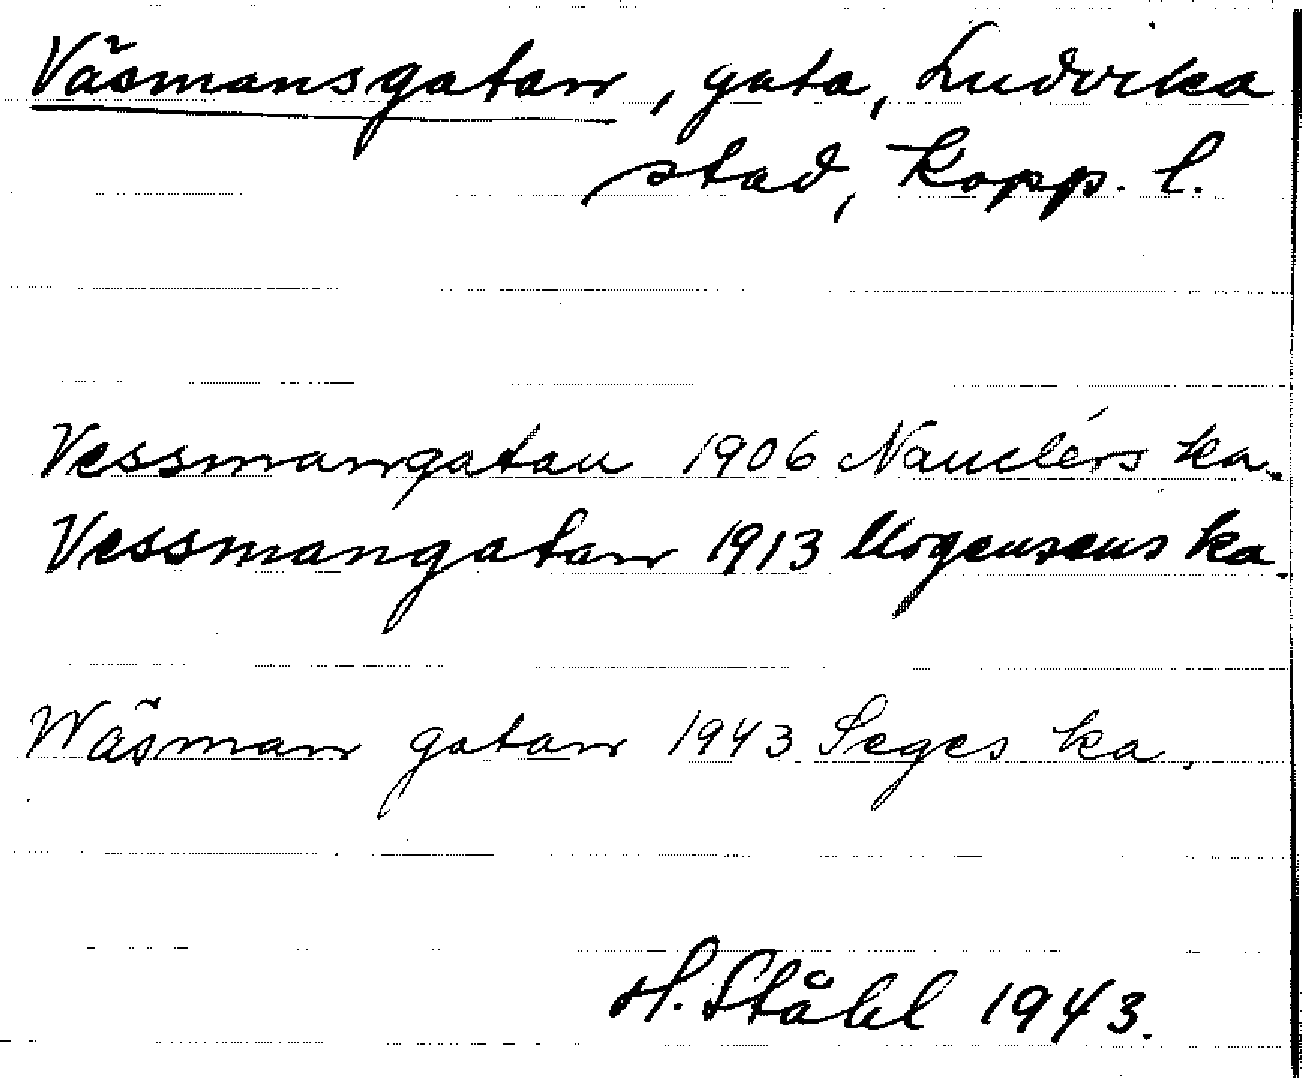 Väsmansgatan, gata, Ludvika
stad, Kopp. l.
Vessmangatan 1906 Nauclérs ka.
Vessmangatan 1913 Mogensens ka.
Wäsman gatan 1943 Seges ka.
H. Ståhl 1943.